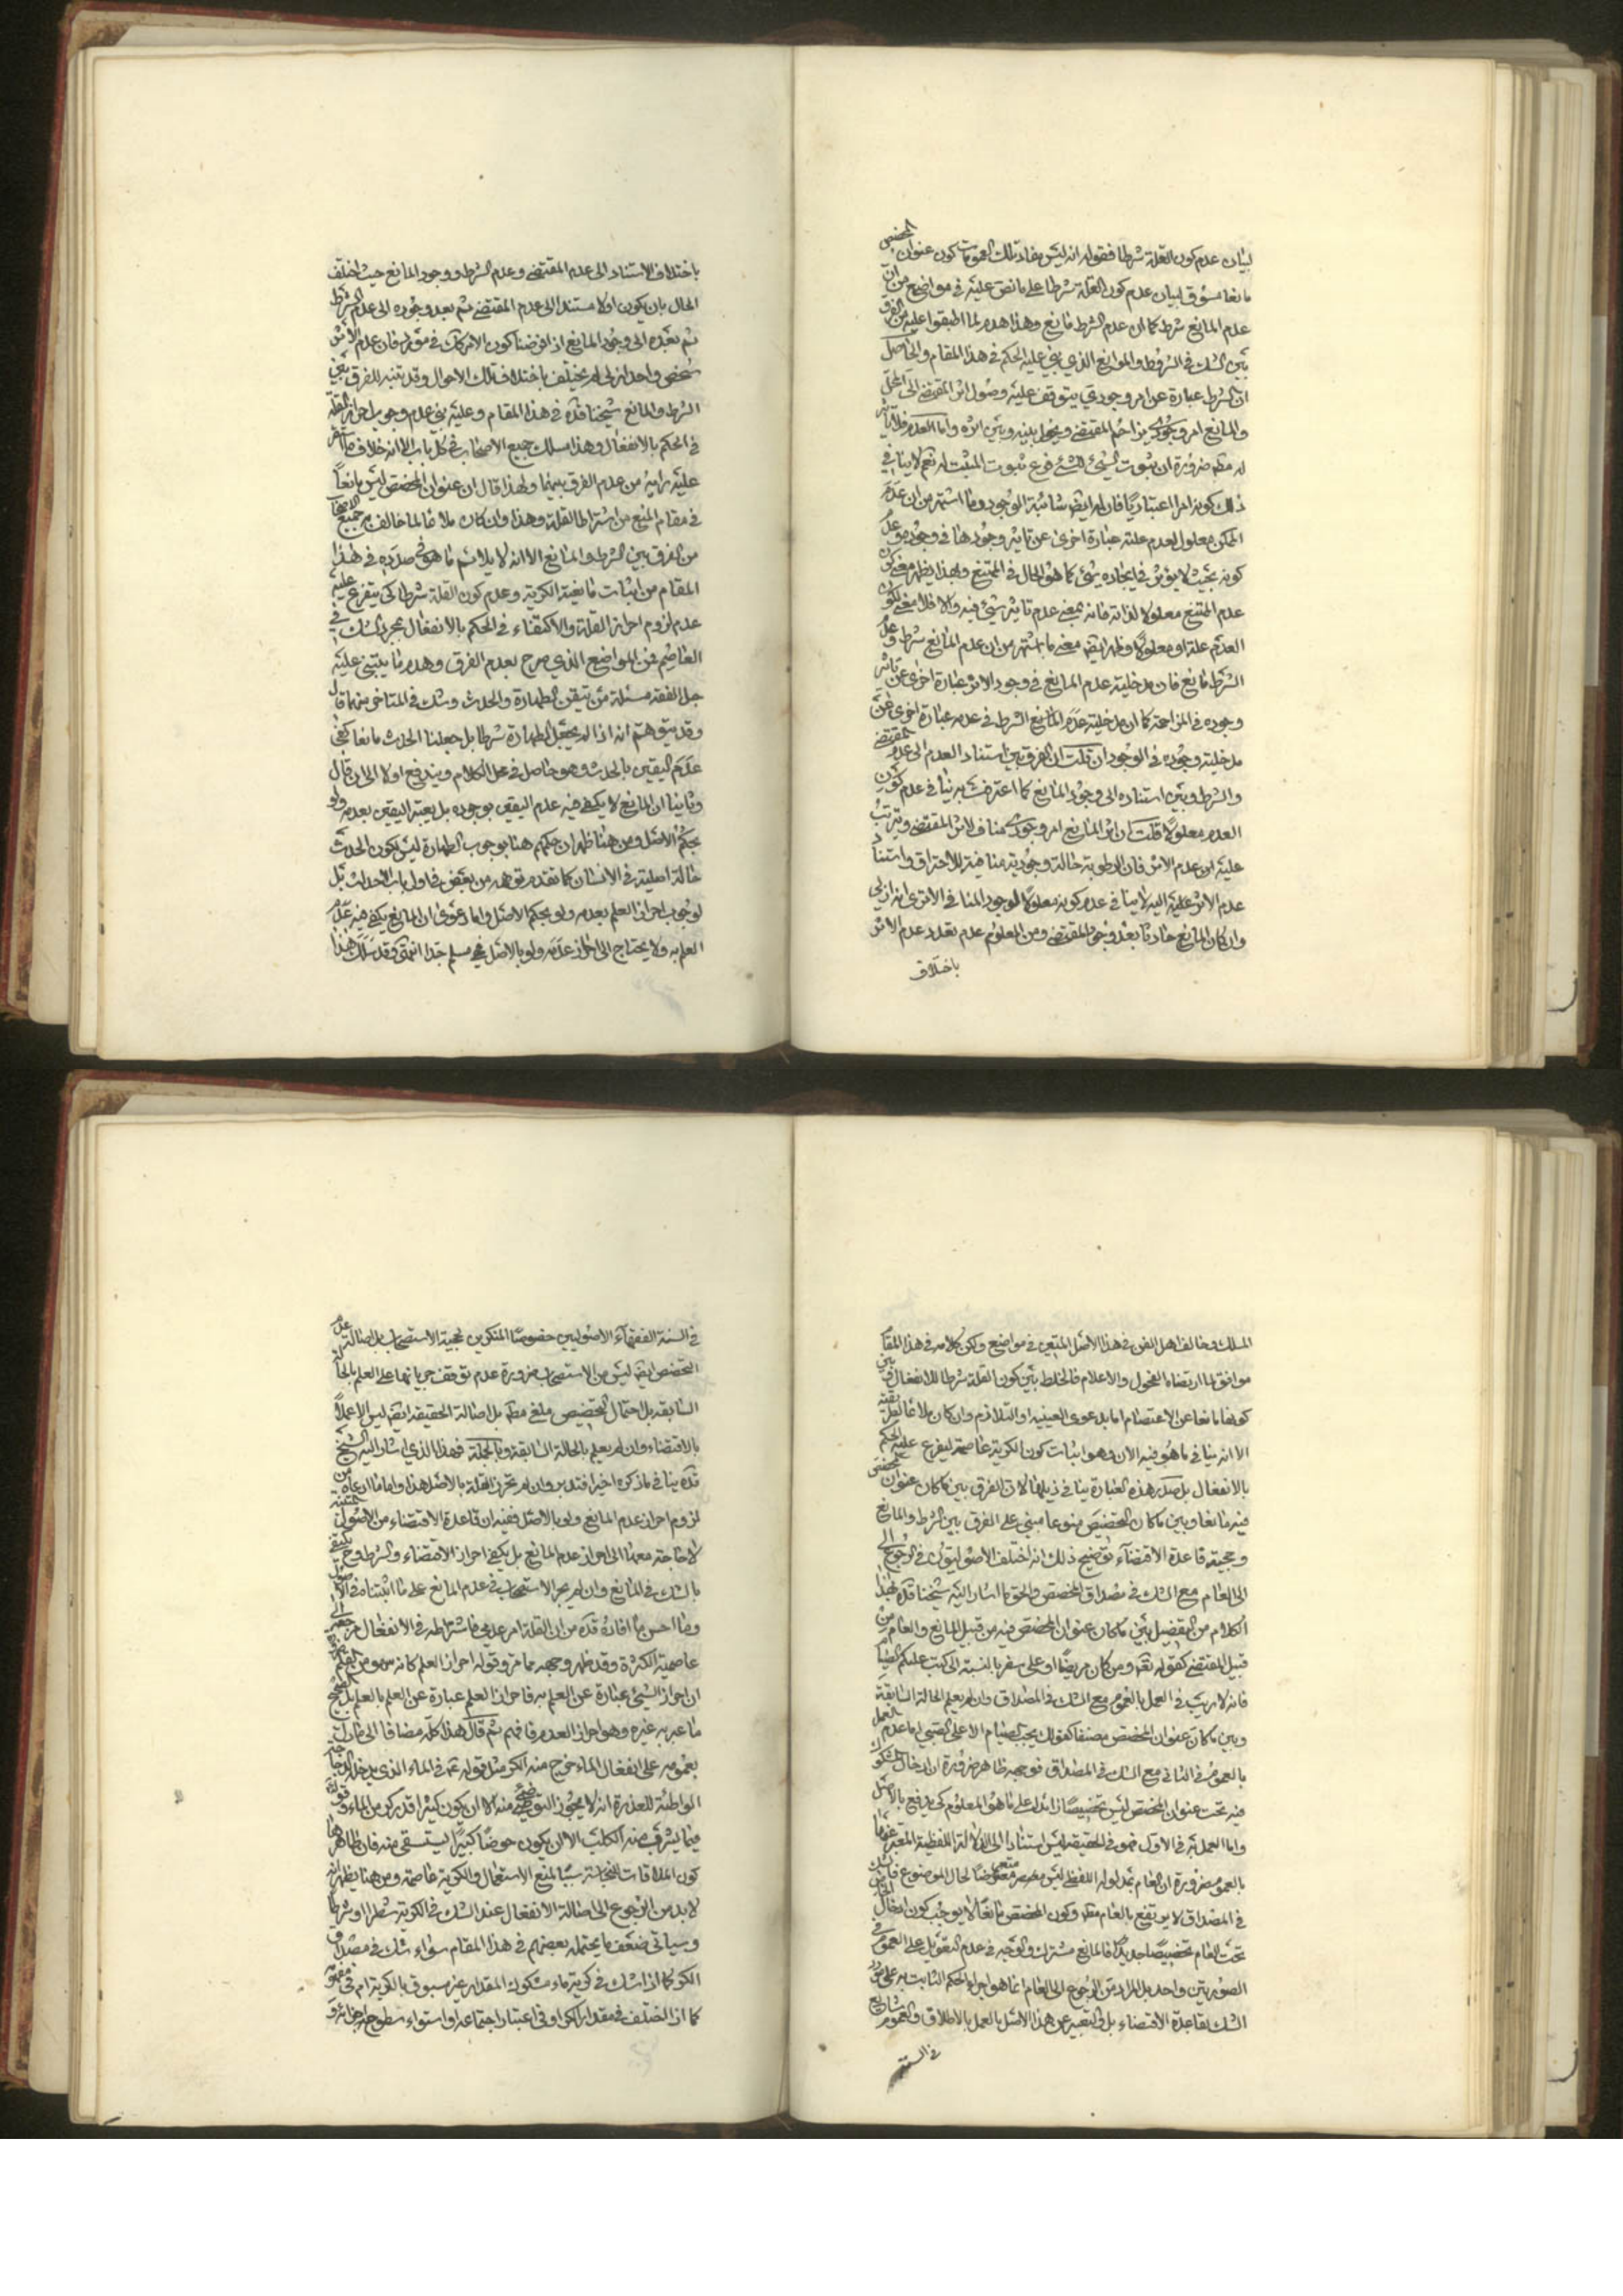 لبيان عدم كون القلة شرطا فقوله انه ليس مفاد تلك العمومات كون عنوان المخصص
مانعا مسوق لبيان عدم كون القلة شرطا على ما نص عليه في مواضع من ان
عدم المانع شرط كما ان عدم الشرط مانع وهذا هدم لما اطبقوا عليه من الفرق
بين الشك في الشروط والموانع الذي بني عليه الحكم في هذا المقام والحاصل
ان الشرط عبارة عن امر وجودي يتوقف عليه وصول اثر المقتضي الى المحل
والمانع امر وجودي يزاحم المقتضي ويحول بينه وبين اثره واما العدم فلا تاثير
له مطلقا ضرورة ان ثبوت الشيء للشيء فرع ثبوت المثبت له نعم لا ينافي
ذلك كونه امرا اعتباريا فان له ايضا شائبة الوجود وما اشتهر من ان عدم
الممكن معلول لعدم علته عبارة اخرى عن تاثير وجودها في وجوده وعدم
كونه بحيث لا يؤثر في ايجاده شيء كما هو الحال في الممتنع وبهذا يظهر معنى كون
عدم الممتنع معلولا لذاته فانه بمعنى عدم تاثير شيء فيه والا فلا معنى لكون
العدم علة او معلولا وظهر ايضا معنى ما اشتهر من ان عدم المانع شرط وعدم
الشرط مانع فان مدخلية عدم المانع في وجود الاثر عبارة اخرى عن تاثير
وجوده في المزاحمة كما ان مدخلية عدم الشرط في عدمه عبارة اخرى عن
مدخلية وجوده في الوجود ان قلت ان الفرق بين استناد العدم الى عدم المقتضي
والشرط وبين استناده الى وجود المانع كما اعترفت به ينافي عدم كون
العدم معلولا قلت ان اثر المانع امر وجودي مناف لاثر المقتضي ويترتب
عليه اين عدم الاثر فان الرطوبة حالة وجودية منافية للاحتراق واستناد
عدم الاثر عليه اليه لا ينافي عدم كونه معلولا لوجود المنافي الاترى انه ازلي
وان كان المانع حادثا بعد وجود المقتضي ومن المعلوم عدم تعدد عدم الاثر
باختلاف
باختلاف الاستناد الى عدم المقتضي وعدم الشرط ووجود المانع حيث اختلف
الحال بان يكون اولا مستندا الى عدم المقتضي ثم بعد وجوده الى عدم الشرط
ثم بعده الى وجود المانع اذا فرضنا كون الامر كك في مورد فان عدم الاثر
شخص واحد ازلي لم يختلف باختلاف تلك الاحوال وقد تنبه للفرق بين
الشرط والمانع شيخنا قده في هذا المقام وعليه بنى عدم وجوب احراز القلة
في الحكم بالانفعال وهذا مسلك جميع الاصحاب في كل باب الا انه خلاف ما استقر
عليه رايه من عدم الفرق بينهما ولهذا قال ان عنوان المخصص ليس مانعا
في مقام المنع من اشتراط القلة وهذا وان كان ملائما لما خالف به جميع الاصحاب
من الفرق بين الشرط والمانع الا انه لا يلائم ما هو في صدده في هذا
المقام من اثبات مانعية الكرية وعدم كون القلة شرطا كي يتفرع عليه
عدم لزوم احراز القلة والاكتفاء في الحكم بالانفعال بمجرد الشك في
العاصم فمن المواضع الذي صرح بعدم الفرق وهدم ما يبتني عليه
جل الفقه مسئلة من تيقن الطهارة والحدث وشك في المتاخر منهما قال
وقد يتوهم انه اذا لم يجعل الطهارة شرطا بل جعلنا الحدث مانعا كفى
عدم اليقين بالحدث وهو حاصل في محل الكلام ويندفع اولا الى ان قال
وثانيا ان المانع لا يكفي فيه عدم اليقين بوجوده بل يعتبر اليقين بعدمه ولو
بحكم الاصل ومن هنا ظهر ان حكمهم هنا بوجوب الطهارة ليس لكون الحدث
حالة اصلية في الانسان كما تقدم توهمه من بعض في اول باب الاحداث بل
لوجوب احراز العلم بعدمه ولو بحكم الاصل واما دعوى ان المانع يكفي فيه عدم
العلم به ولا يحتاج الى احراز عدمه ولو بالاصل فغير مسلم جدا انتهى وقد سلك هذا
المسلك وخالف اهل الفن في هذا الاصل المتين في مواضع ولكن كلامه في هذا المقام
موافق لما ارتضاه الفحول والاعلام فالخلط بين كون القلة شرطا للانفعال وبين
كونها مانعا عن الاعتصام اما بدعوى العينية او التلازم وان كان ملائما لطريقته
الا انه ينافي ما هو فيه الان وهو اثبات كون الكرية عاصمة ليفرع عليه الحكم
بالانفعال بل صدر هذه العبارة ينافي ذيلها لان الفرق بين ما كان عنوان المخصص
فيه مانعا وبين ما كان التخصيص منوعا مبني على الفرق بين الشرط والمانع
وحجية قاعدة الاقتضاء توضيح ذلك انه اختلف الاصوليون في الرجوع الى
الى العام مع الشك في مصداق المخصص والحق ما اشار اليه شيخنا قده بهذا
الكلام من التفصيل بين ما كان عنوان المخصص فيه من قبيل المانع والعام من
قبيل المقتضي كقوله تعالى ومن كان مريضا او على سفر بالنسبة الى كتب عليكم الصيام
فانه لا ريب في العمل بالعموم مع الشك في المصداق وان لم يعلم الحالة السابقة
وبين ما كان عنوان المخصص مصنفا كقولك يجب الصيام الا على الصبي اما عدم العمل
بالعموم في الثاني مع الشك في المصداق فوجهه ظاهر ضرورة ان ادخال المشكوك
فيه تحت عنوان المخصص ليس تخصيصا زائدا على ما هو المعلوم كي يدفع بالاصل
واما العمل به في الاول فهو في الحقيقة ليس استنادا الى الدلالة اللفظية المعتبر عنها
بالعموم ضرورة ان العام بمدلوله اللفظي ليس متعرضا لحال الموضوع فالشك
في المصداق لا يرتفع بالعام مطلقا وكون المخصص مانعا لا يوجب كون ادخال
تحت العام تخصيصا جديدا فالمانع مشترك والوجه في عدم التعويل على العموم في
الصورتين واحد بل المراد من الرجوع الى العام انما هو اجراء الحكم الثابت به على مورد
الشك بقاعدة الاقتضاء بل في التعبير عن هذا الاصل بالعمل بالاطلاق والعموم شايع
في السنة
في السنة الفقهاء الاصوليين خصوصا المنكرين لحجية الاستصحاب بل اصالة عدم
التخصص ايضا ليس من الاستصحاب ضرورة عدم توقف جريانها على العلم بالحالة
السابقة بل احتمال التخصيص ملغى مطلقا بل اصالة الحقيقة ايضا ليس الا عملا
بالاقتضاء وان لم يعلم بالحالة السابقة وبالجملة فهذا الذي اشار اليه الشيخ
قده ينافي ما ذكره اخيرا فتدبر وان لم تحرز القلة بالاصل هذا واما ما ادعاه من
لزوم احراز عدم المانع ولو بالاصل ففيه ان قاعدة الاقتضاء من الاصول المتقنة
لا حاجة معها الى احراز عدم المانع بل يكفي احراز الاقتضاء والشرط
بالشك في المانع وان لم يجر الاستصحاب في عدم المانع على ما اثبتناه في الاصول
وما احسن ما افاده قده من ان القلة امر عدمي فاشتراطه في الانفعال مرجعه الى
عاصمية الكثرة وقد ظهر وجهه مما مر وقوله احراز العلم كانه سهو من القلم
ان احراز الشيء عبارة عن العلم به فاحراز العلم عبارة عن العلم بالعلم بل الصحيح
ما عبر به غيره وهو احراز العدم فافهم ثم قال هذا كله مضافا الى ما دل
بعمومه على انفعال الماء خرج منه الكر مثل قوله ع في الماء الذي يدخله الدجاجة
الواطئة للعذرة انه لا يجوز التوضي منه الا ان يكون كثيرا قدر كر من الماء وقوله
فيما يشرب منه الكلب الا ان يكون حوضا كبيرا يستسقى منه فان ظاهرهما
كون الملاقات للنجاسة سببا لمنع الاستعمال والكرية عاصمة ومن هنا يظهر انه
لا بد من الرجوع الى اصالة الانفعال عند الشك في الكرية شطرا او شرطا
وسياتي ضعف ما يحتمله بعضهم في هذا المقام سواء شك في مصداق
الكر كما اذا شك في كرية ماء مشكوك المقدار غير مسبوق بالكرية ام في مفهومه
كما اذا اختلف في مقدار الكر او في اعتبار اجتماعه او استواء سطوح اجزائه و